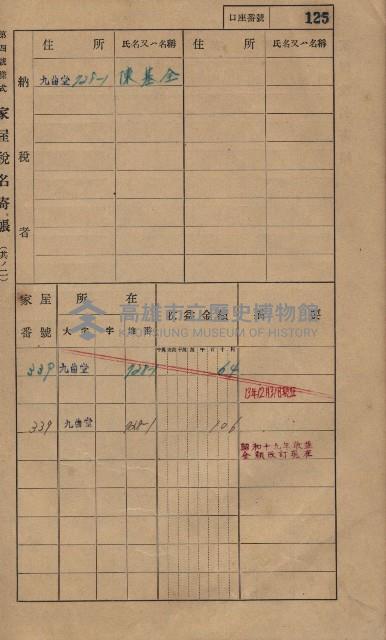 口座番號 125
第四號樣式 家屋稅名寄帳 (共ノ二)
納稅者
住所 氏名又ハ名稱 住所 氏名又ハ名稱
九曲堂 928-1 陳基全
家屋番號 所在 收益金額 摘要
大字 字 地番
339 九曲堂 928-1 64
13年12月31日
339 九曲堂 928-1 106
昭和十九年收益
金額改訂
高雄市立歷史博物館
KAOHSIUNG MUSEUM OF HISTORY